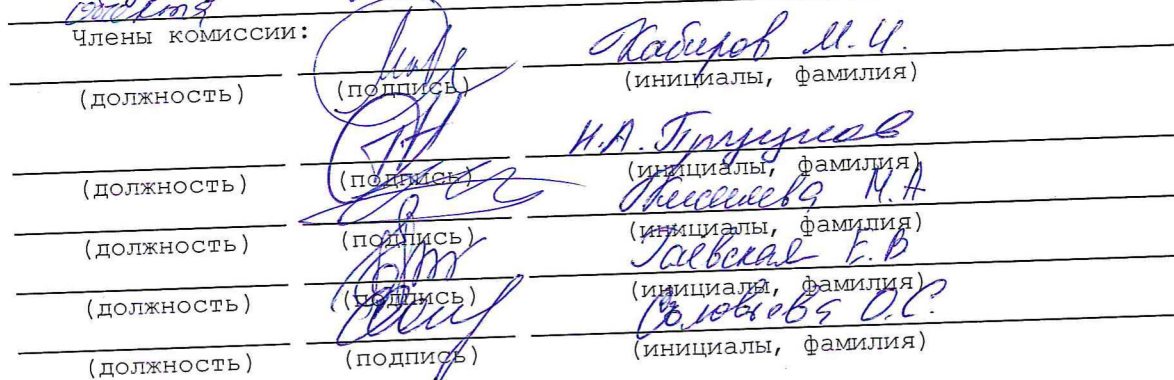 Члены комиссии:
Хабиров М.И.
(должность) (подпись) (инициалы, фамилия)
Н.А.
(должность) (подпись) (инициалы, фамилия)
М.А
(должность) (подпись) (инициалы, фамилия)
Гаевская Е.В
(должность) (подпись) (инициалы, фамилия)
Соловьева О.С.
(должность) (подпись) (инициалы, фамилия)